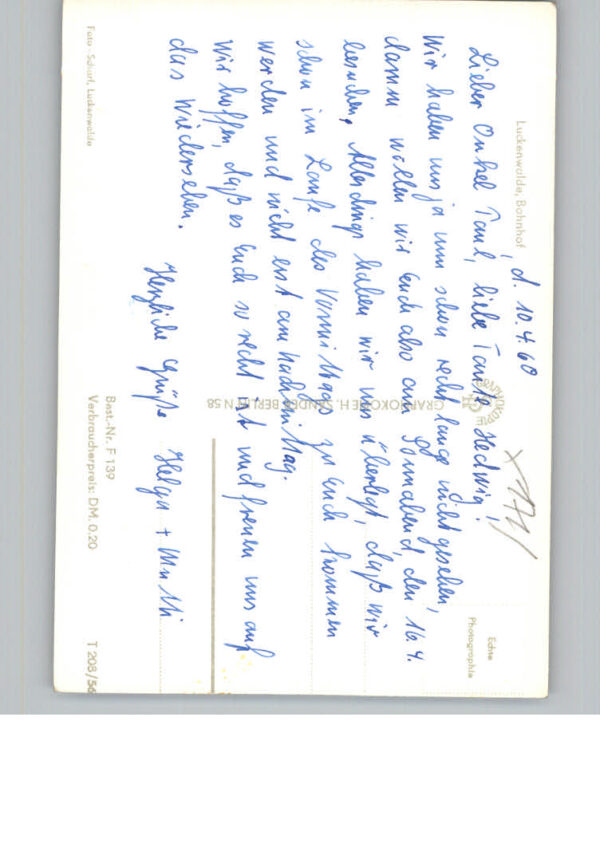 Luckenwalde, Bahnhof
, d. 10.4.60
Lieber Onkel Paul, liebe Tante Hedwig!
Wir haben uns ja nun schon recht lange nicht gesehen,
damm wollen wir Euch also am Sonnabend, den 16.4.
besuchen. Allerdings haben wir uns überlegt, daß wir
schon im Laufe des Vormittag zu Euch kommen
werden und nicht erst am Nachmittag.
Wir hoffen, daß es Euch so recht ist und freuen uns auf
das Wiedersehen.
Herzliche Grüße Helga + Mutti
Echte
Photographie
GRAPHOKOPIE
GRAPHOKOPIE H. SANDER BERLIN N 58
Foto - Scharf, Luckenwalde
Best.-Nr. F 139
Verbraucherpreis: DM. 0.20
T 208/56